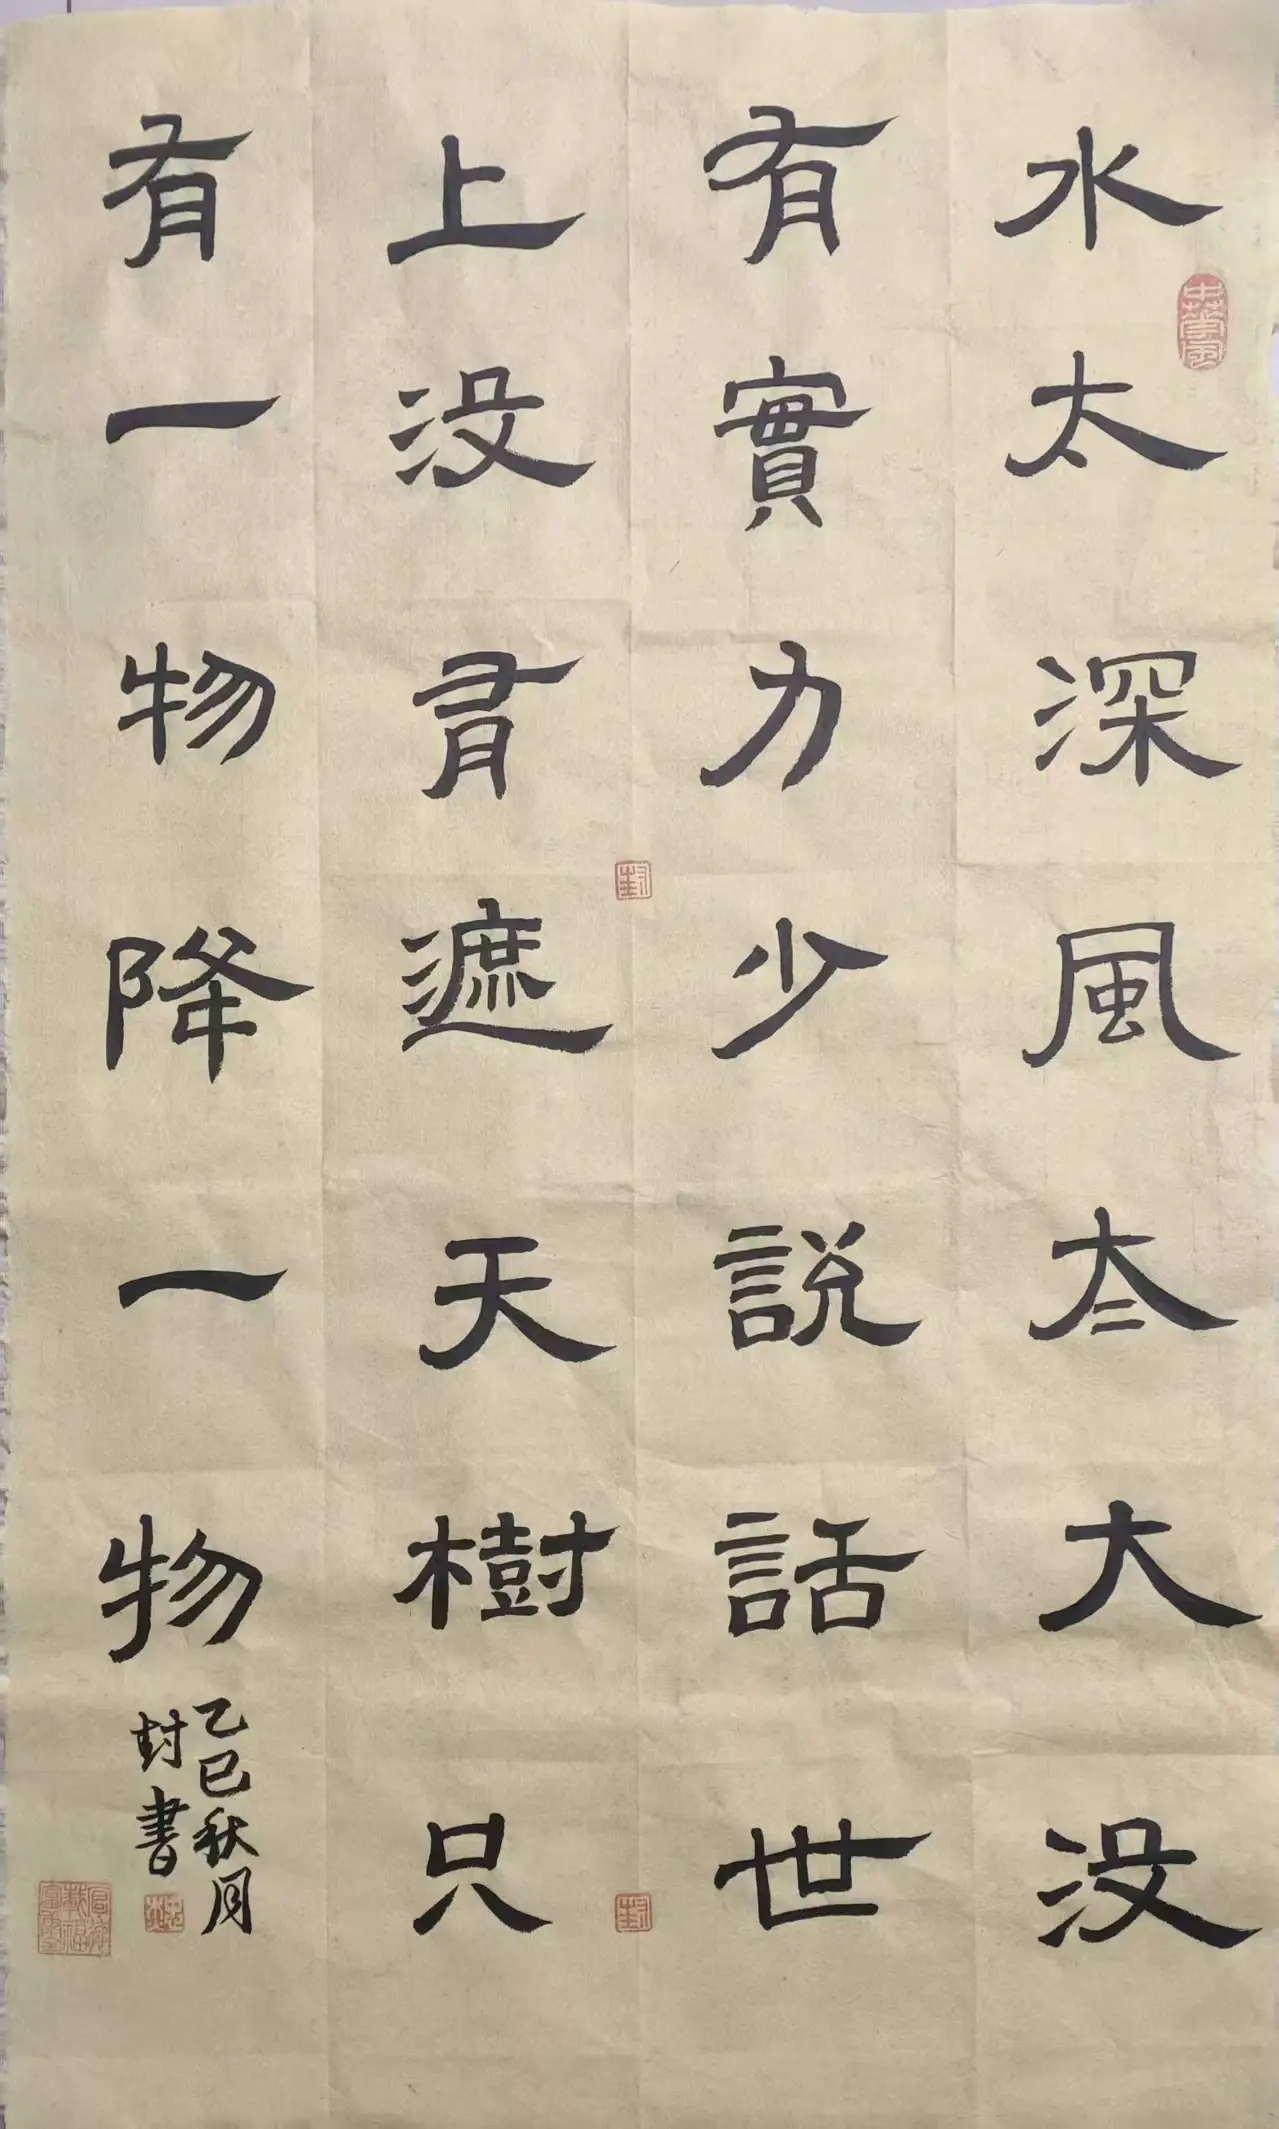 水太深風太大没
有實力少説話世
上没有遮天樹只
有一物降一物
乙巳秋月
封書
封
封